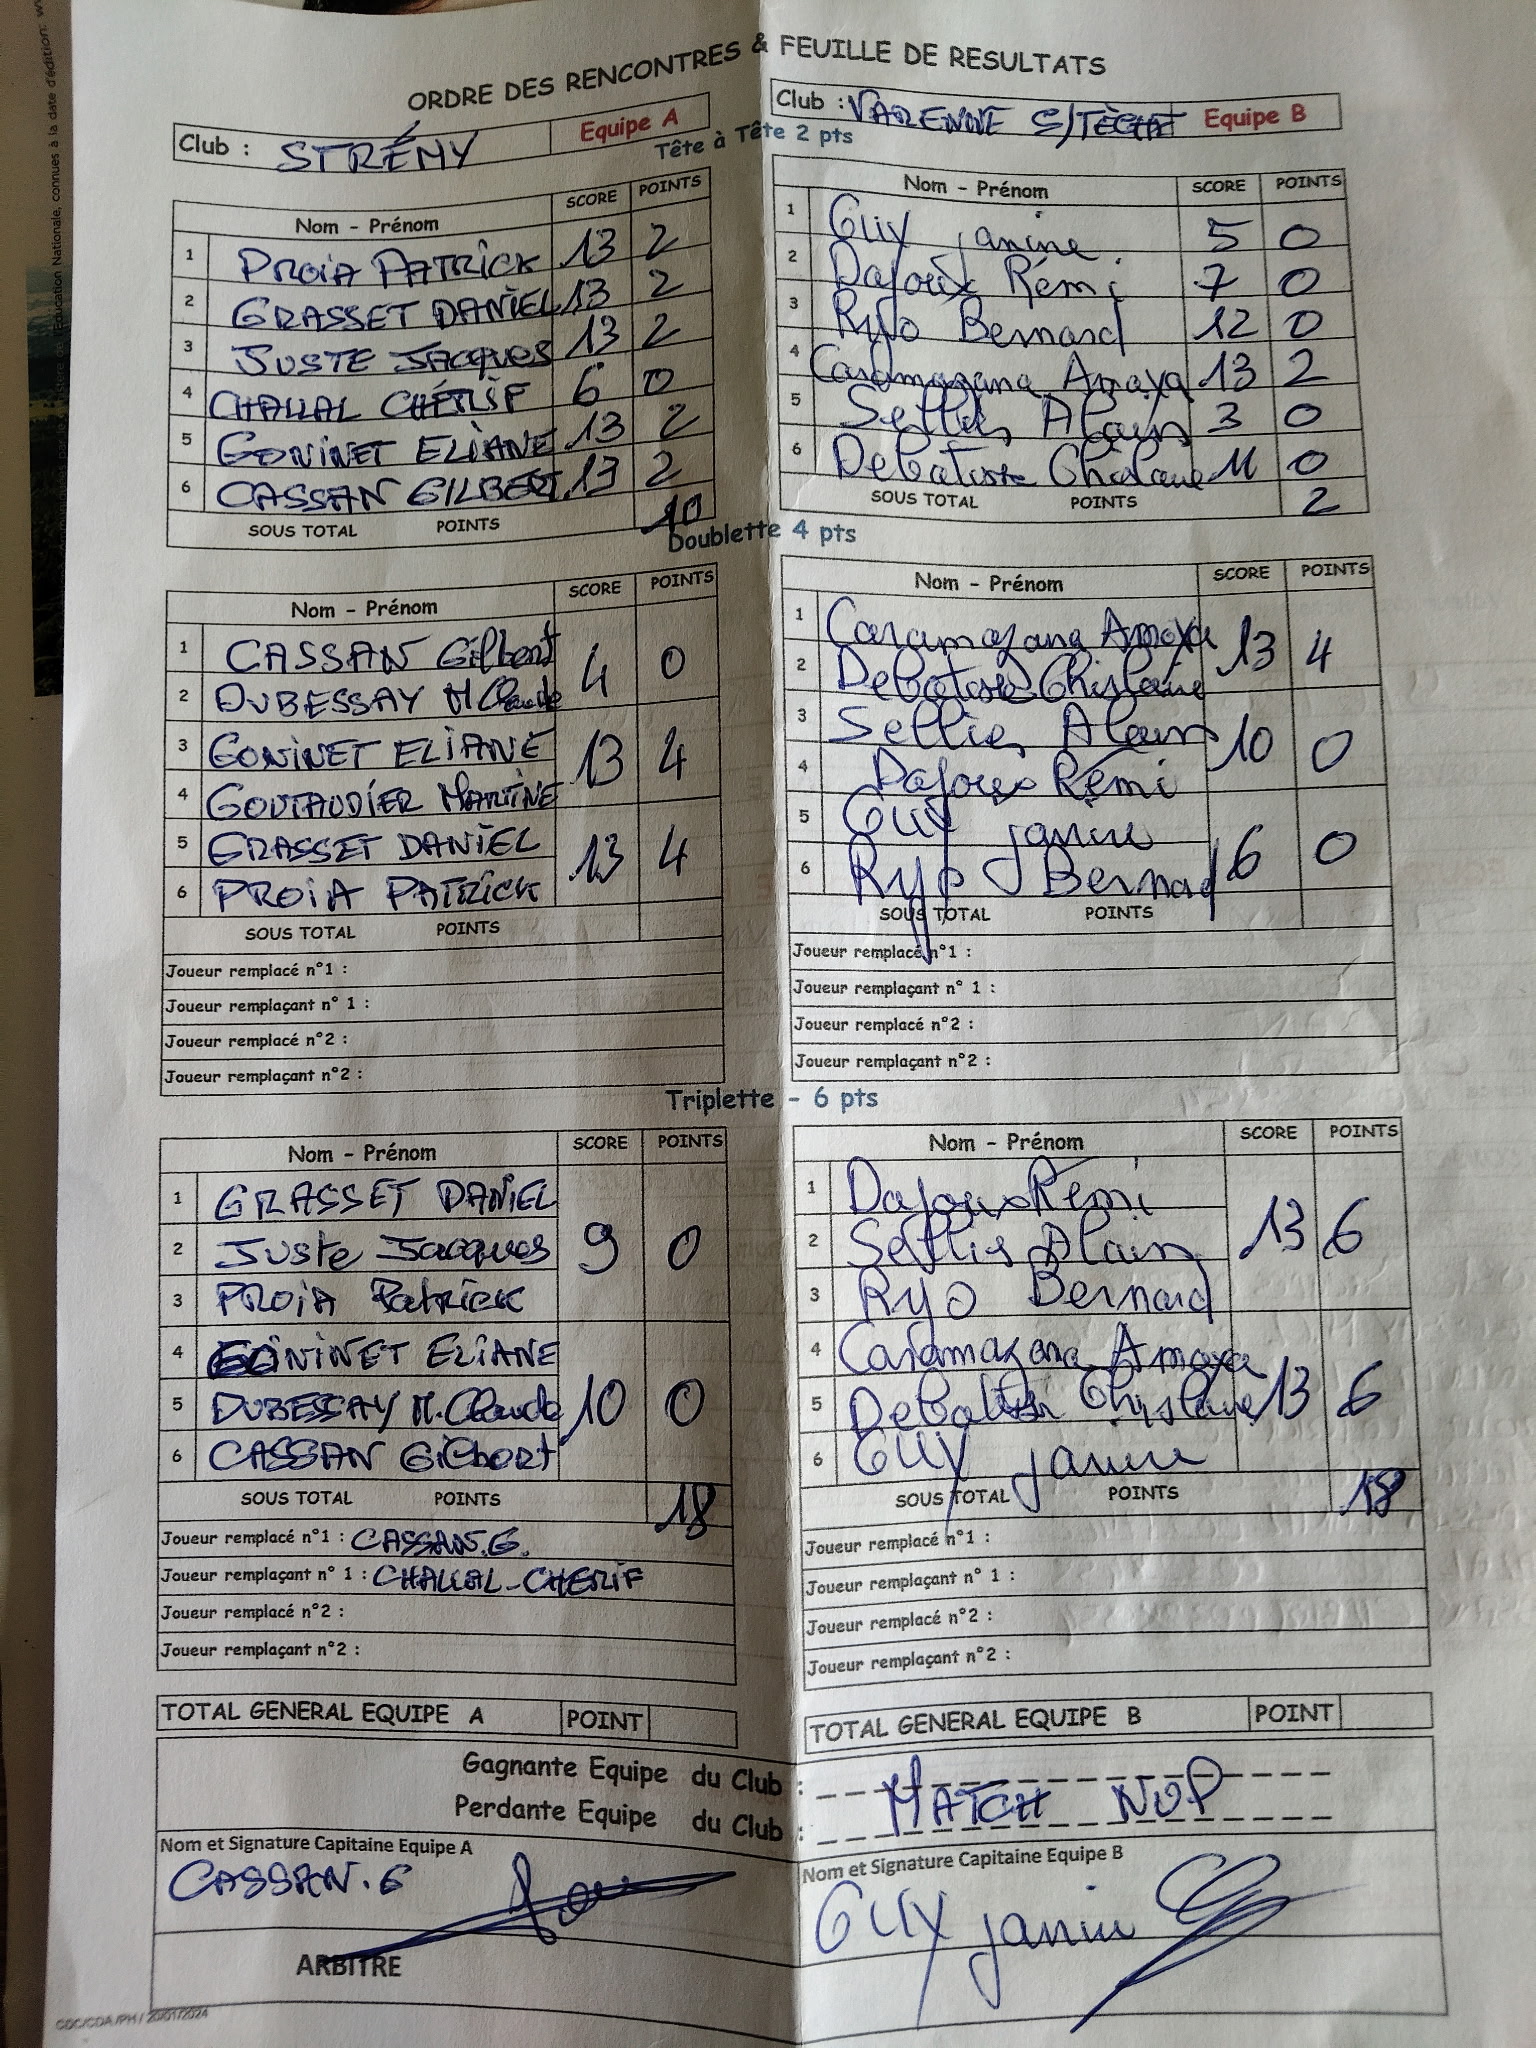 ORDRE DES RENCONTRES & FEUILLE DE RESULTATS
Club : STRÉMY Equipe A
Club : VARENNE S/TÈCHE Equipe B
Tête à Tête 2 pts
Nom - Prénom SCORE POINTS
1 PROIA PATRICK 13 2
2 GRASSET DANIEL 13 2
3 JUSTE JACQUES 13 2
4 CHALLAL CHÉRIF 6 0
5 GONINET ELIANE 13 2
6 CASSAN GILBERT 13 2
SOUS TOTAL POINTS 10
Nom - Prénom SCORE POINTS
1 Guy janine 5 0
2 Dajoux Rémi 7 0
3 Ryo Bernard 12 0
4 Caramazana Amaya 13 2
5 Sellies Alain 3 0
6 Debatisse Ghislaine 11 0
SOUS TOTAL POINTS 2
Doublette 4 pts
Nom - Prénom SCORE POINTS
1 CASSAN Gilbert 4 0
2 DUBESSAY M.Claude
3 GONINET ELIANE 13 4
4 GOUTAUDIER MARTINE
5 GRASSET DANIEL 13 4
6 PROIA PATRICK
SOUS TOTAL POINTS
Joueur remplacé n°1 :
Joueur remplaçant n° 1 :
Joueur remplacé n°2 :
Joueur remplaçant n°2 :
Nom - Prénom SCORE POINTS
1 Caramazana Amaya 13 4
2 Debatisse Ghislaine
3 Sellies Alain 10 0
4 Dajoux Rémi
5 Guy janine 6 0
6 Ryo Bernard
SOUS TOTAL POINTS
Joueur remplacé n°1 :
Joueur remplaçant n° 1 :
Joueur remplacé n°2 :
Joueur remplaçant n°2 :
Triplette - 6 pts
Nom - Prénom SCORE POINTS
1 GRASSET DANIEL
2 Juste Jacques 9 0
3 PROIA Patrick
4 GONINET ELIANE
5 DUBESSAY M.Claude 10 0
6 CASSAN Gilbert
SOUS TOTAL POINTS 18
Joueur remplacé n°1 : CASSAN.G.
Joueur remplaçant n° 1 : CHALLAL-CHERIF
Joueur remplacé n°2 :
Joueur remplaçant n°2 :
Nom - Prénom SCORE POINTS
1 Dajoux Rémi
2 Sellies Alain 13 6
3 Ryo Bernard
4 Caramazana Amaya
5 Debatisse Ghislaine 13 6
6 GUY janine
SOUS TOTAL POINTS 18
Joueur remplacé n°1 :
Joueur remplaçant n° 1 :
Joueur remplacé n°2 :
Joueur remplaçant n°2 :
TOTAL GENERAL EQUIPE A POINT
TOTAL GENERAL EQUIPE B POINT
Gagnante Equipe du Club :
Perdante Equipe du Club :
MATCH NUP
Nom et Signature Capitaine Equipe A
CASSAN.G
Nom et Signature Capitaine Equipe B
GUY janine
ARBITRE
CDC/CDA/PH / 20/01/2024